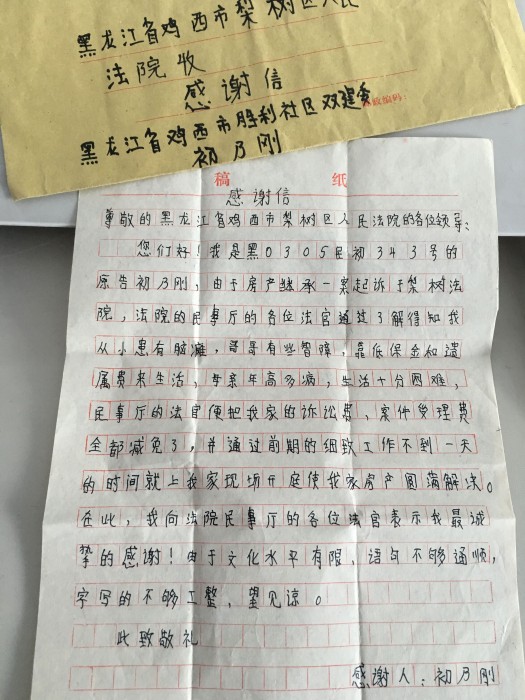 黑龙江省鸡西市梨树区人民
法院收
感谢信
黑龙江省鸡西市胜利社区双建委
初乃刚
稿 纸
感谢信
尊敬的黑龙江省鸡西市梨树区人民法院的各位领导:
您们好!我是黑0305民初343号的
原告初乃刚,由于房产继承一案起诉于梨树法
院,法院的民事厅的各位法官通过了解得知我
从小患有脑瘫,哥哥有些智障,靠低保金和遗
属费来生活,母亲年高多病,生活十分困难,
民事厅的法官便把我家的诉讼费,案件受理费
全都减免了,并通过前期的细致工作不到一天
的时间就上我家现场开庭使我家房产圆满解决。
在此,我向法院民事厅的各位法官表示我最诚
挚的感谢!由于文化水平有限,语句不够通顺,
字写的不够工整,望见谅。
此致敬礼
感谢人:初乃刚